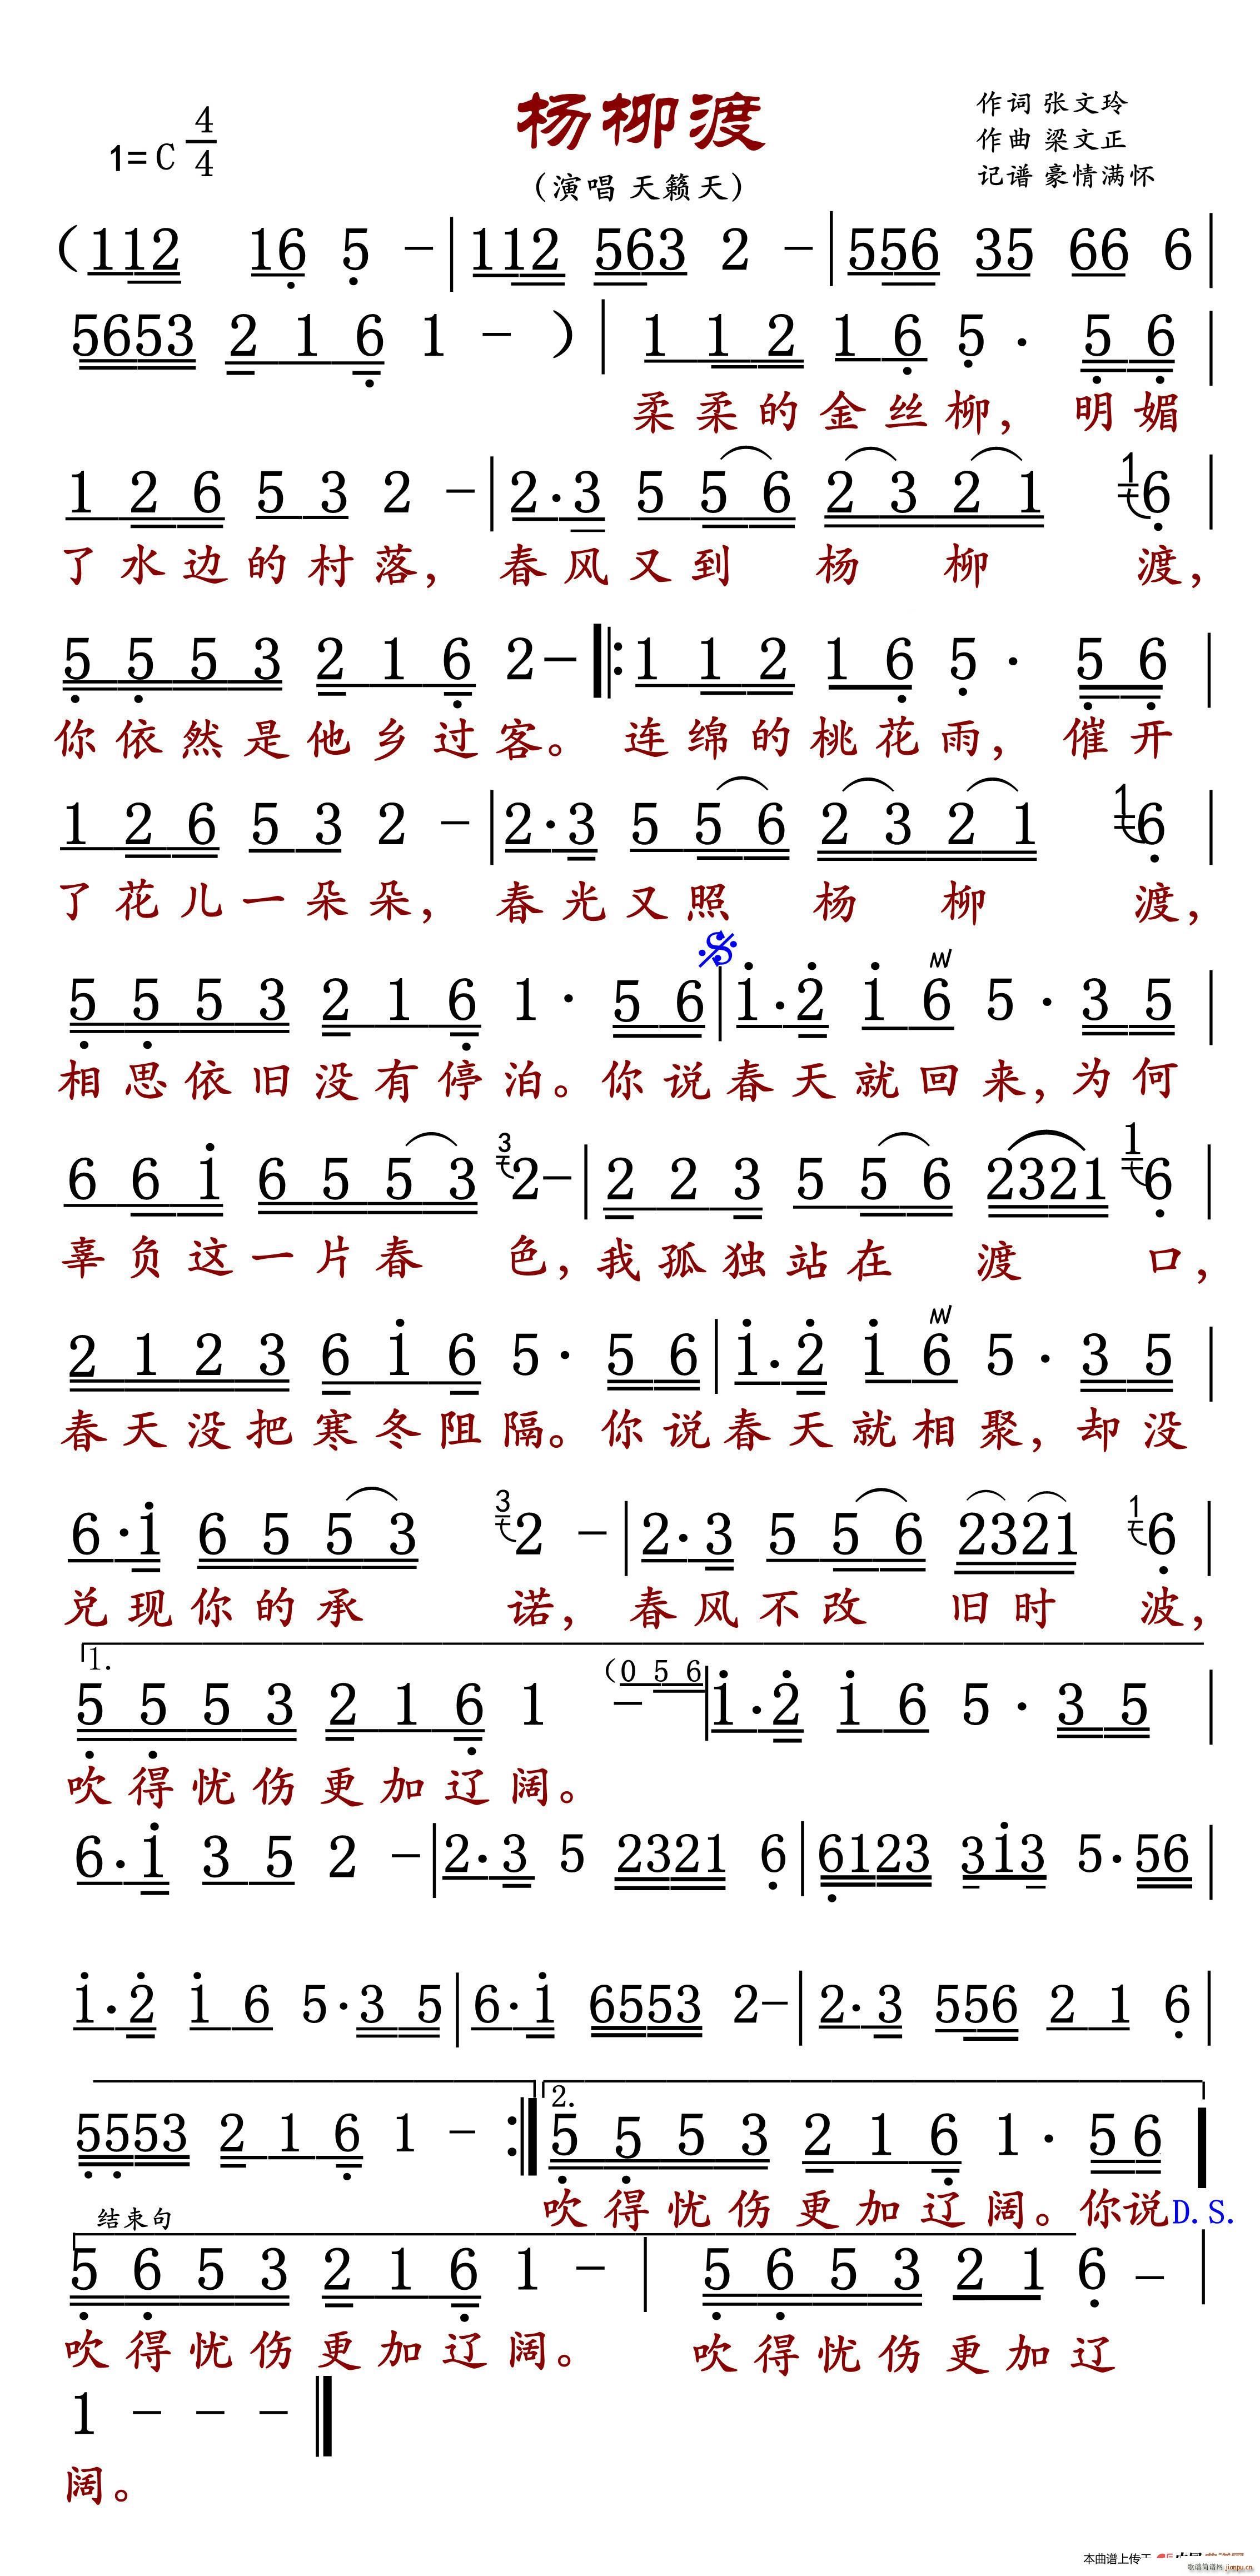 杨柳渡
1=C 4/4
(演唱 天籁天)
作词 张文玲
作曲 梁文正
记谱 豪情满怀
(112 16 5 - | 112 563 2 - | 556 35 66 6 |
5653 2 1 6 1 - ) | 1 1 2 1 6 5 · 5 6 |
柔柔的金丝柳，明媚
1 2 6 5 3 2 - | 2·3 5 5 6 2 3 2 1 1 6 |
了水边的村落，春风又到杨柳渡，
5 5 5 3 2 1 6 2 - |: 1 1 2 1 6 5 · 5 6 |
你依然是他乡过客。连绵的桃花雨，催开
1 2 6 5 3 2 - | 2·3 5 5 6 2 3 2 1 1 6 |
了花儿一朵朵，春光又照杨柳渡，
5 5 5 3 2 1 6 1 · 5 6 | 1·2 1 6 5 · 3 5 |
相思依旧没有停泊。你说春天就回来，为何
6 6 1 6 5 5 3 3 2 - | 2 2 3 5 5 6 2321 1 6 |
辜负这一片春色，我孤独站在渡口，
2 1 2 3 6 1 6 5 · 5 6 | 1·2 1 6 5 · 3 5 |
春天没把寒冬阻隔。你说春天就相聚，却没
6·1 6 5 5 3 3 2 - | 2·3 5 5 6 2321 1 6 |
兑现你的承诺，春风不改旧时波，
1.
5 5 5 3 2 1 6 1 - (0 5 6 | 1·2 1 6 5 · 3 5 |
吹得忧伤更加辽阔。
6·1 3 5 2 - | 2·3 5 2321 6 | 6123 313 5·56 |
1·2 1 6 5·3 5 | 6·1 6553 2 - | 2·3 556 2 1 6 |
5553 2 1 6 1 - :| 2. 5 5 5 3 2 1 6 1 · 5 6 |
吹得忧伤更加辽阔。你说 D.S.
结束句
5 6 5 3 2 1 6 1 - | 5 6 5 3 2 1 6 - |
吹得忧伤更加辽阔。吹得忧伤更加辽
1 - - - ||
阔。
本曲谱上传于
歌谱简谱网 jianpu.cn